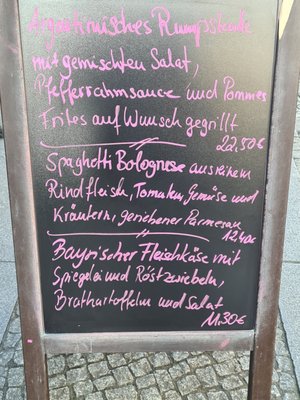 Argentinisches Rumpsteak
mit gemischten Salat,
Pfefferrahmsauce und Pommes
Frites auf Wunsch gegrillt
22,50€
Spaghetti Bolognese aus reinem
Rindfleisch, Tomaten, Gemüse und
Kräutern, geriebener Parmesan
12,40€
Bayrischer Fleischkäse mit
Spiegelei und Röstzwiebeln,
Bratkartoffeln und Salat
11,30€